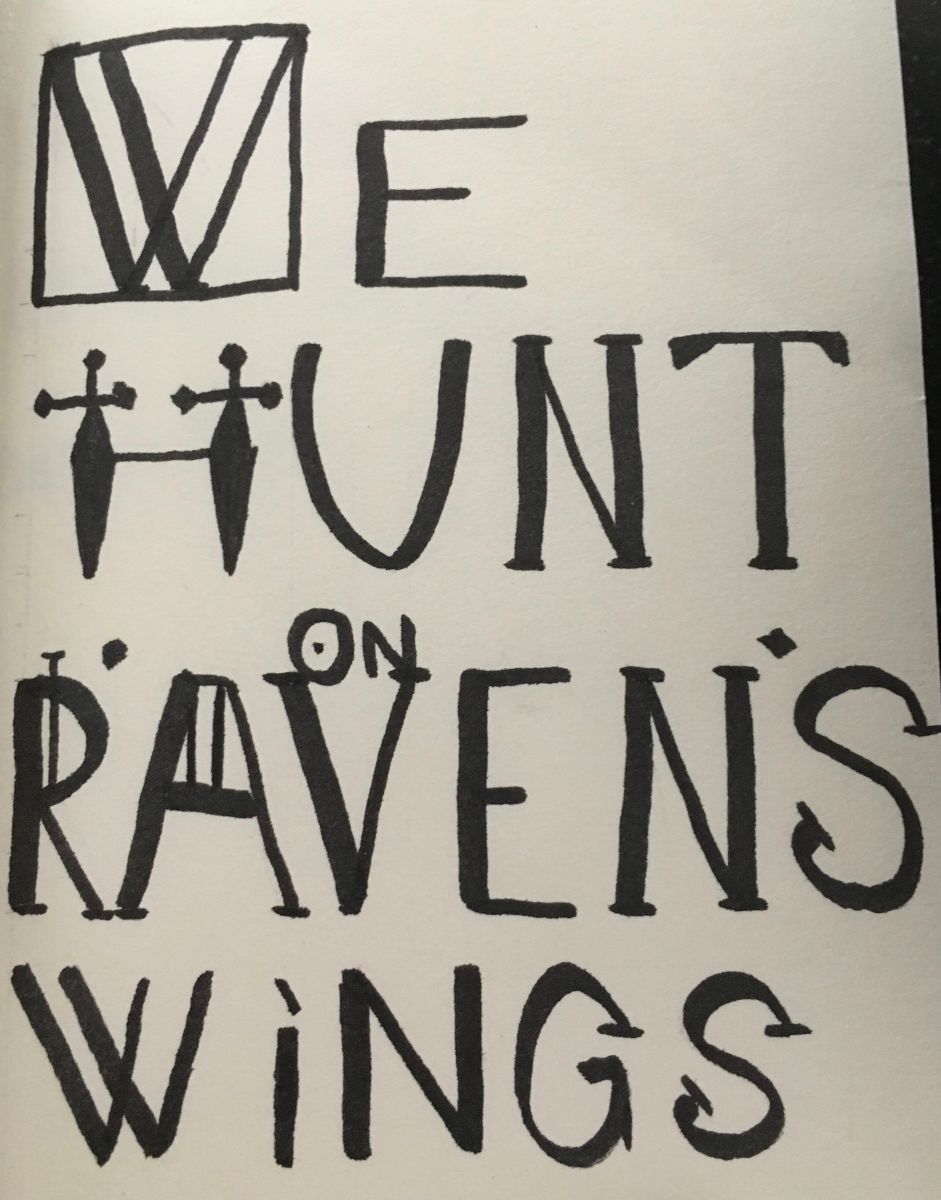 WE
HUNT
ON
RAVEN'S
WiNGS